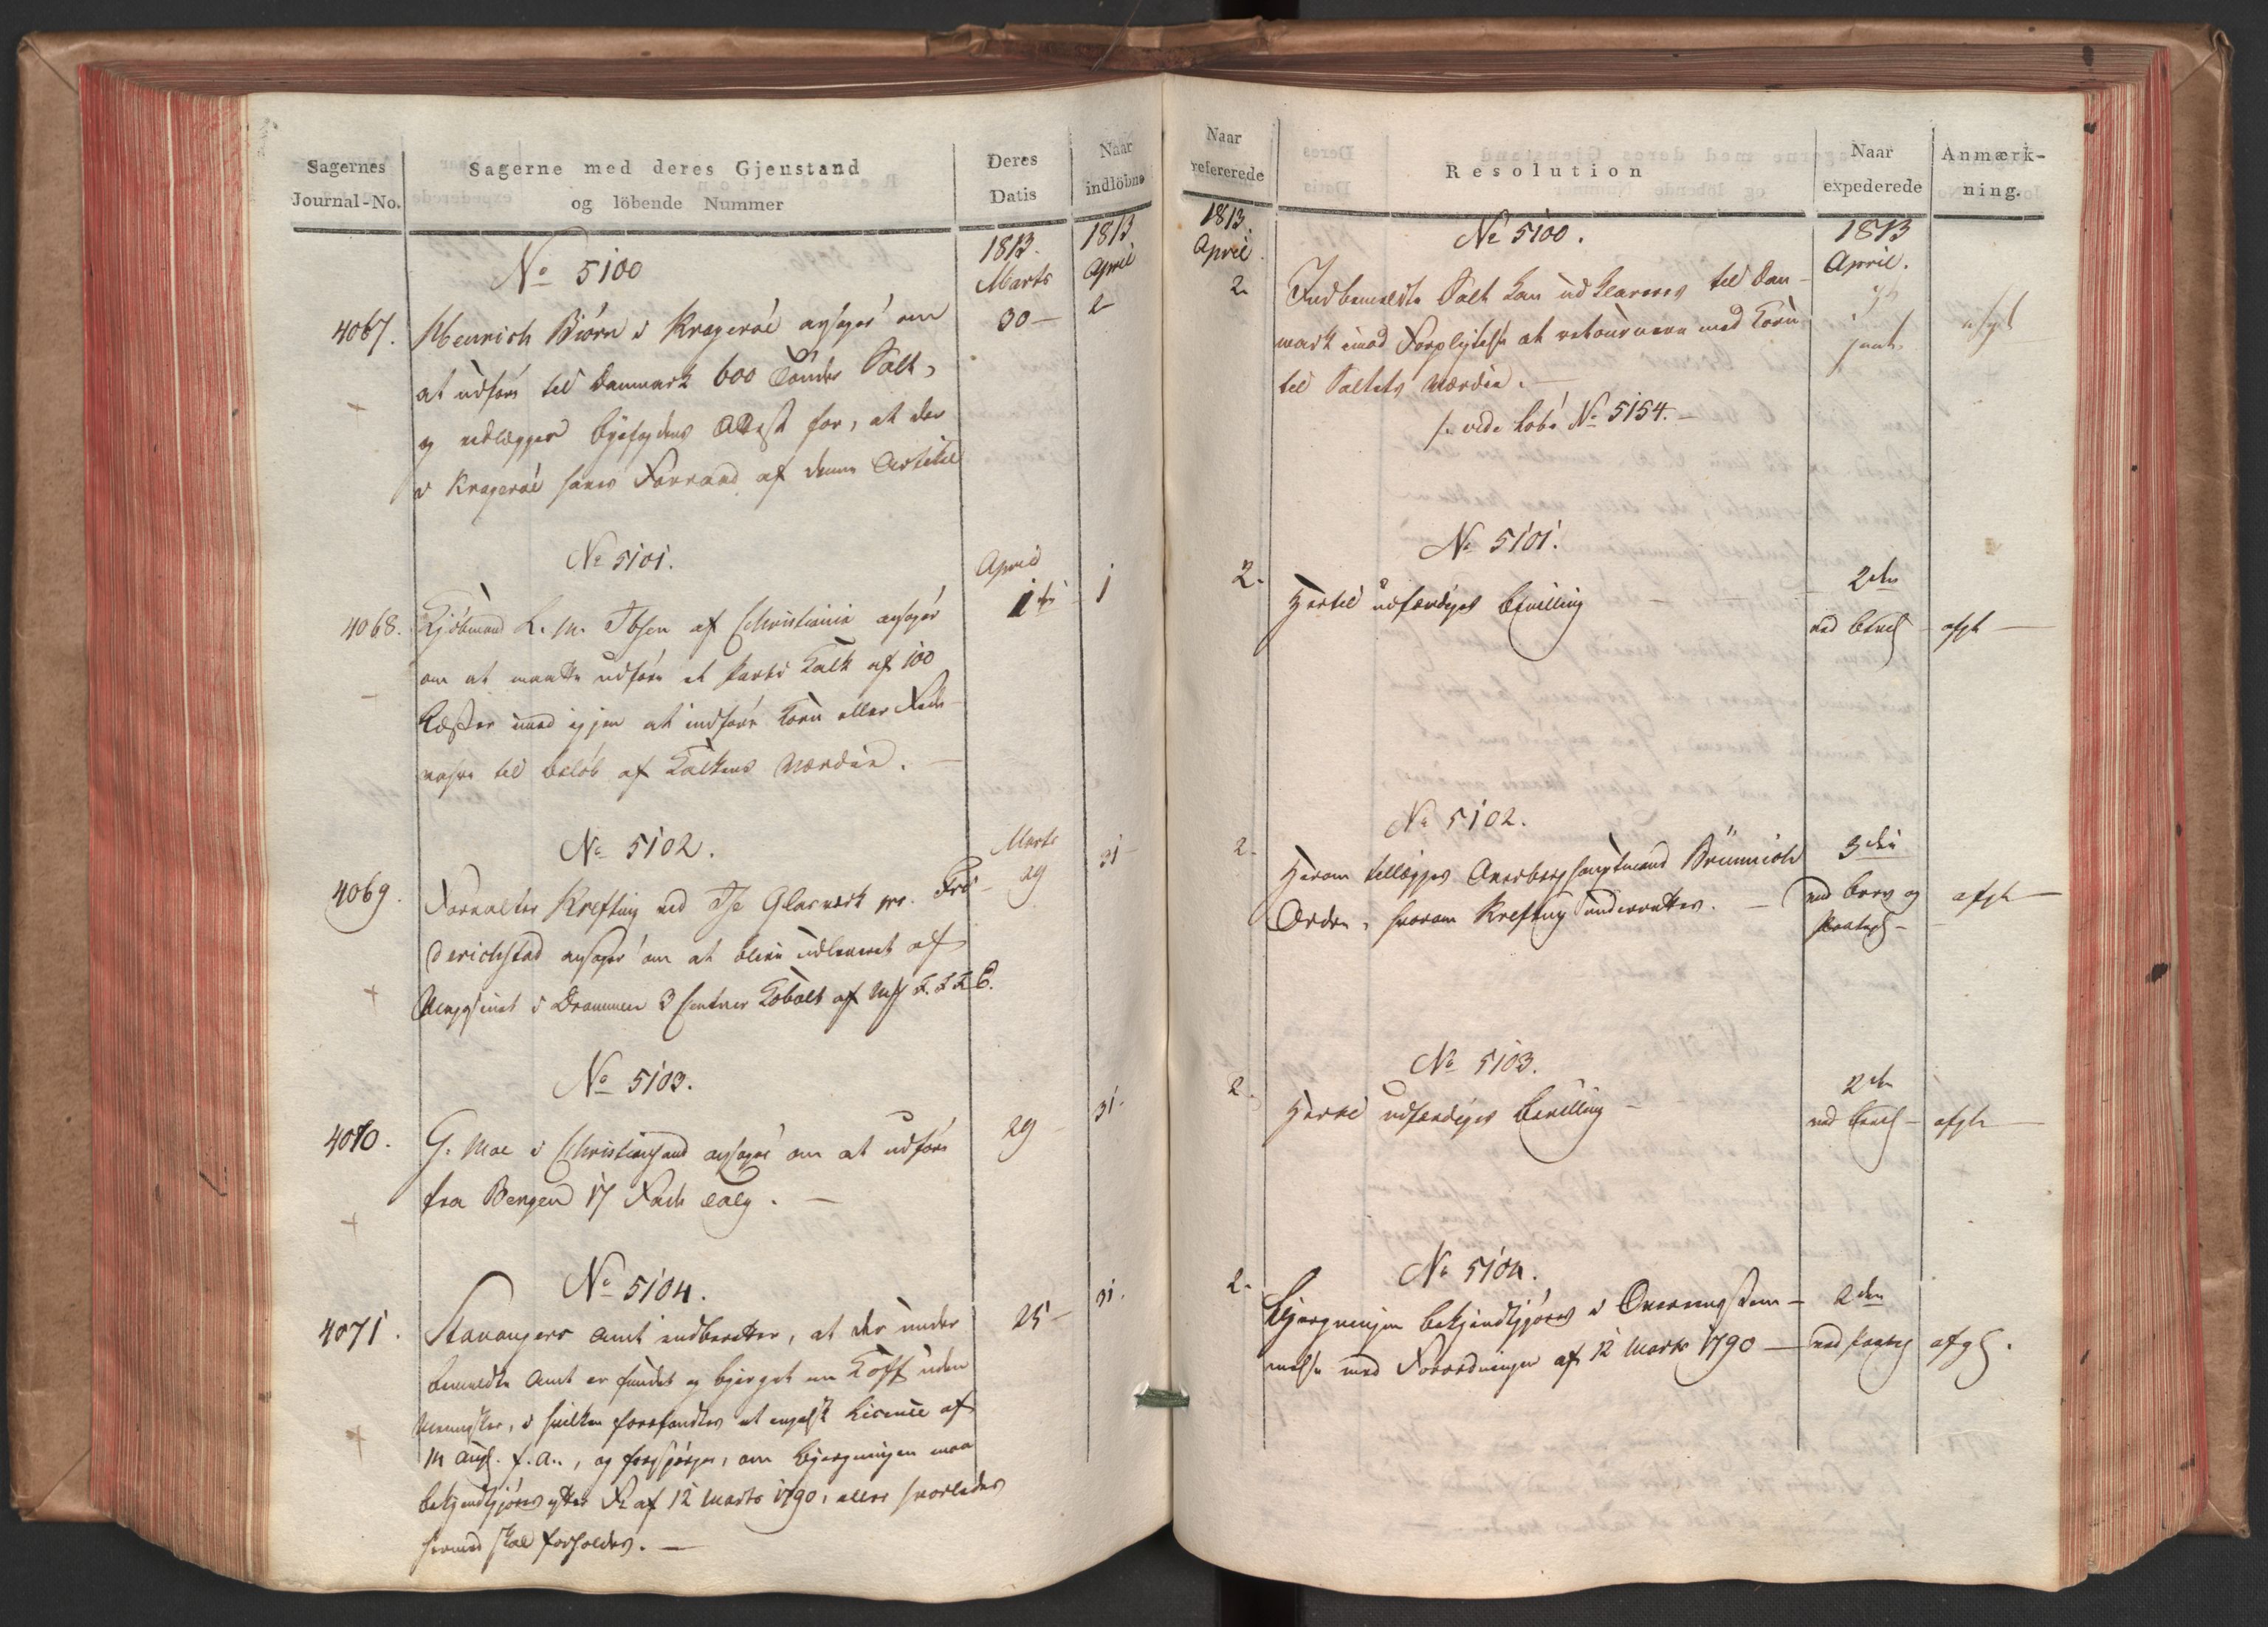 Sagernes
Journal-No.
Sagerne med deres Gjenstand
og löbende Nummer
Deres
Datis
Naar
indlöbne
1813. Marts
1813 April
No 5100
4067. Henrich Biörn i Krageröe ansöger om 30 – 2
at udföre til Danmark 600 Tönder Salt,
og vedlægger Byefogdens Attest for, at der
i Krageröe haves Forraad af denne Artikel
No 5101.
April
4068. Kjöbmand L. M. Ibsen af Christiania ansöger 1ste 1
om at maatte udföre et Partie Kalk af 100
Læster imod igjen at indföre Korn eller Fede-
vahre til Belöb af Kalkens Værdie. –
No 5102.
Marts
4069. Forvalter Krefting ved Glasværk pr. Fri- 29 31
derichstad ansöger om at blive udleveret af
Magasinet i Drammen 3 Centner Kobolt af F.F.F.E.
No 5103.
4070. G. Moe i Christiansand ansöger om at udföre 29 – 31.
fra Bergen 17 Fade Talg. –
No 5104.
4071. Stavangers Amt indberetter, at der under 25 – 31.
bemeldte Amt er fundet og bjerget en Koff uden
Mennesker, i hvilken forefandtes et engelsk Licence af
14 Aug. f. A., og forespörger, om Bjergningen maa
bekjendtgjöres efter Fr. af 12 Marts 1790, eller hvorledes
hermed skal forholdes. –
Naar
refererede
Resolution
Naar
expederede
Anmærk-
ning.
1813. April.
No 5100.
1813 April.
2. Indbemeldte Salt kan udklareres til Dan-
mark imod Forpligtelse at retournere med Korn
til Saltets Værdie. –
/: vide Löbe No 5154. –
No 5101.
2. Hertil udfærdiges Bevilling – 2den
afgk –
No 5102.
2. Herom tillægges Overbergshauptmand Brünnich 3die
Ordre, hvorom Krefting underrettes. – ved Brev og afgk –
No 5103.
2. Hertil udfærdiges Bevilling – 2den
afgk –
No 5104.
2. Bjergningen bekjendtgjöres i Overeensstem- 2den
melse med Forordningen af 12 Marts 1790 –